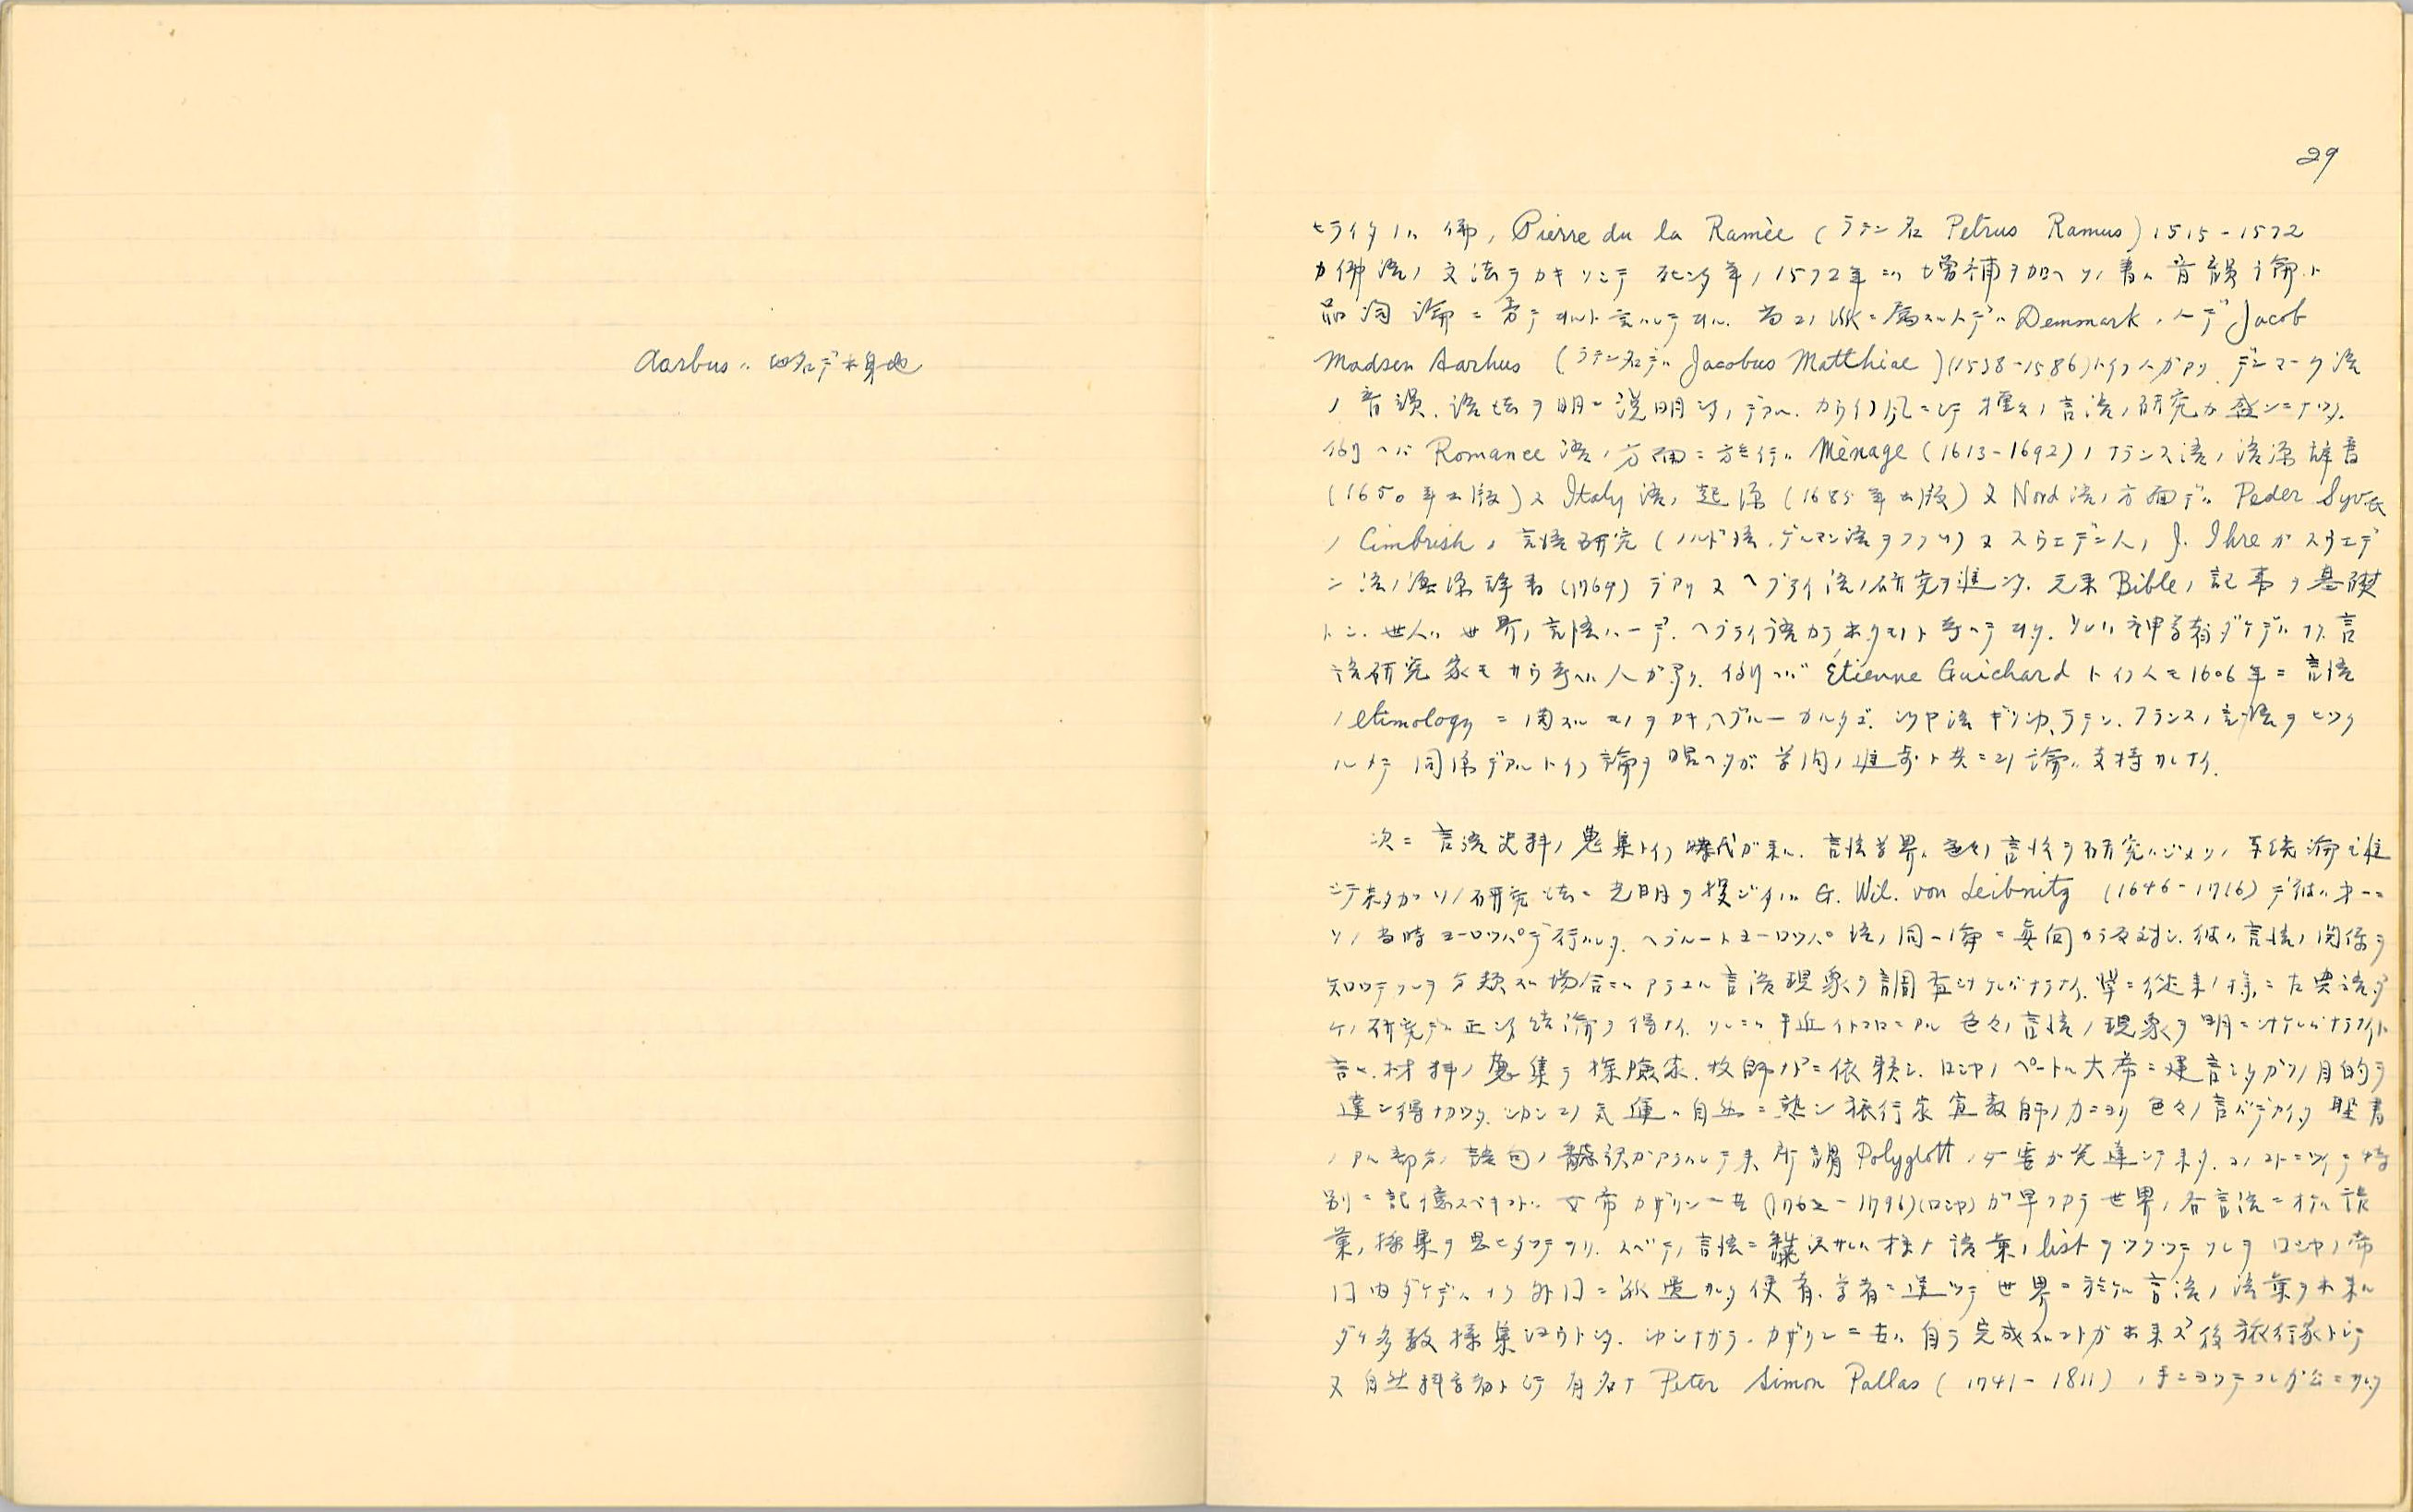 Aarbus ハ 地名デ出身地
29
ヒライタノハ 佛ノ Pierre du la Ramèe (ラテン名 Petrus Ramus) 1515-1572
ガ佛語ノ文法ヲカキソシテ死ンダ年ノ1572年ニハ増補ヲ加ヘソノ書ハ音韻論ト
品詞論ニ 言ハレテヰル. Denmarkノ人デ Jacob
Madsen Aarhus (ラテン名デハ Jacobus Matthiae)(1538-1586)トイフ人ガアリ デンマーク語
ノ音韻.語法ヲ明ニ説明シタノデアル. カウイフ風ニシテ種々ノ言語ノ研究ガ盛ンニナツタ.
例ヘバ Romance 語ノ方面ニ於テハ Mènage (1613-1692)ノフランス語ノ語源辞書
(1650年出版)又 Italy 語ノ起源 (1685年出版) 又 Nord語ノ方面デハ Peder Syv氏
ノ Cimbrishノ言語研究 (ノルド語.ゲルマン語ヲフクム)又スウエデン人ノ J. Ihre ガスウエデ
ン語ノ語源辞書 (1769) デアリ又ヘブライ語ノ研究ヲ進メタ. 元来 Bibleノ記事ヲ基礎
トシ. 世人ハ世界ノ言語ハ一デ. ヘブライ語カラ出タモノト考ヘテヰタ. ソレハ神学者ダケデハナク言
語研究家モカク考ヘル人ガアリ. 例ヘバ Étienne Guichard トイフ人モ1606年ニ言語
ノ etimology ニ関スルモノヲカキ,ヘブルー カルダヤ. シリヤ語 ギリシヤ,ラテン.フランスノ言語ヲヒツク
ルメテ同源デアルトイフ論ヲ唱ヘタガ 学問ノ進歩ト共ニコノ論ハ支持サレナイ.
次ニ言語史料ノ蒐集トイフ時代ガ来ル. 言語学界ハ色々ノ言語ヲ研究ハジメソノ系統論モ進
ンデ来タガソノ研究法ニ光明ヲ投ジタノハ G. Wil. von Leibnitz (1646-1716) デ彼ハ第一ニ
ソノ当時ヨーロツパデ行ハレタ. ヘブルートヨーロツパ語ノ同一論ニ真向カラ反対シ. 彼ハ言語ノ関係ヲ
知ツテソレヲ分類スル場合ニハアラユル言語現象ヲ調査シナケレバナラナイ. 単ニ従来ノ様ニ古典語ダ
ケノ研究デハ正シイ結論ヲ得ナイ. ソレニハ手近イトコロニアル色々ノ言語ノ現象ヲ明ニシナケレバナラナイト
言ヒ. 材料ノ蒐集ヲ探険家.牧師ナドニ依頼シ. ロシヤノペートル大帝ニ建言シタガソノ目的ヲ
達シ得ナカツタ. シカシコノ気運ハ自然ニ熟シ旅行家宣教師ノ力ニヨリ色々ノ言バデカイタ聖書
ノアル部分ノ語句ノ飜訳ガアラハレテ来 所謂 Polyglottノ 発達シテ来タ. コノコトニツイテ特
別ニ記憶スベキコトハ 女帝カザリン二世 (1762-1796)(ロシヤ)ガ早クカラ世界ノ各言語ニ於ル語
葉ノ採集ヲ思ヒタツテヲリ. スベテノ言語ニ飜訳サレル様ナ語葉ノ list ヲツクツテソレヲロシヤノ帝
国内ダケデハナク外国ニ派遣サレタ使者.学者ニ送ツテ世界ニ於ケル言語ノ語葉ヲ出来ル
ダケ多数採集シヨウトシタ. シカシナガラ.カザリン二世ハ自ラ完成スルコトガ出来ズ後旅行家トシテ
又自然科学者トシテ有名ナ Peter Simon Pallas (1741-1811) ノ手ニヨツテコレガ公ニサレタ